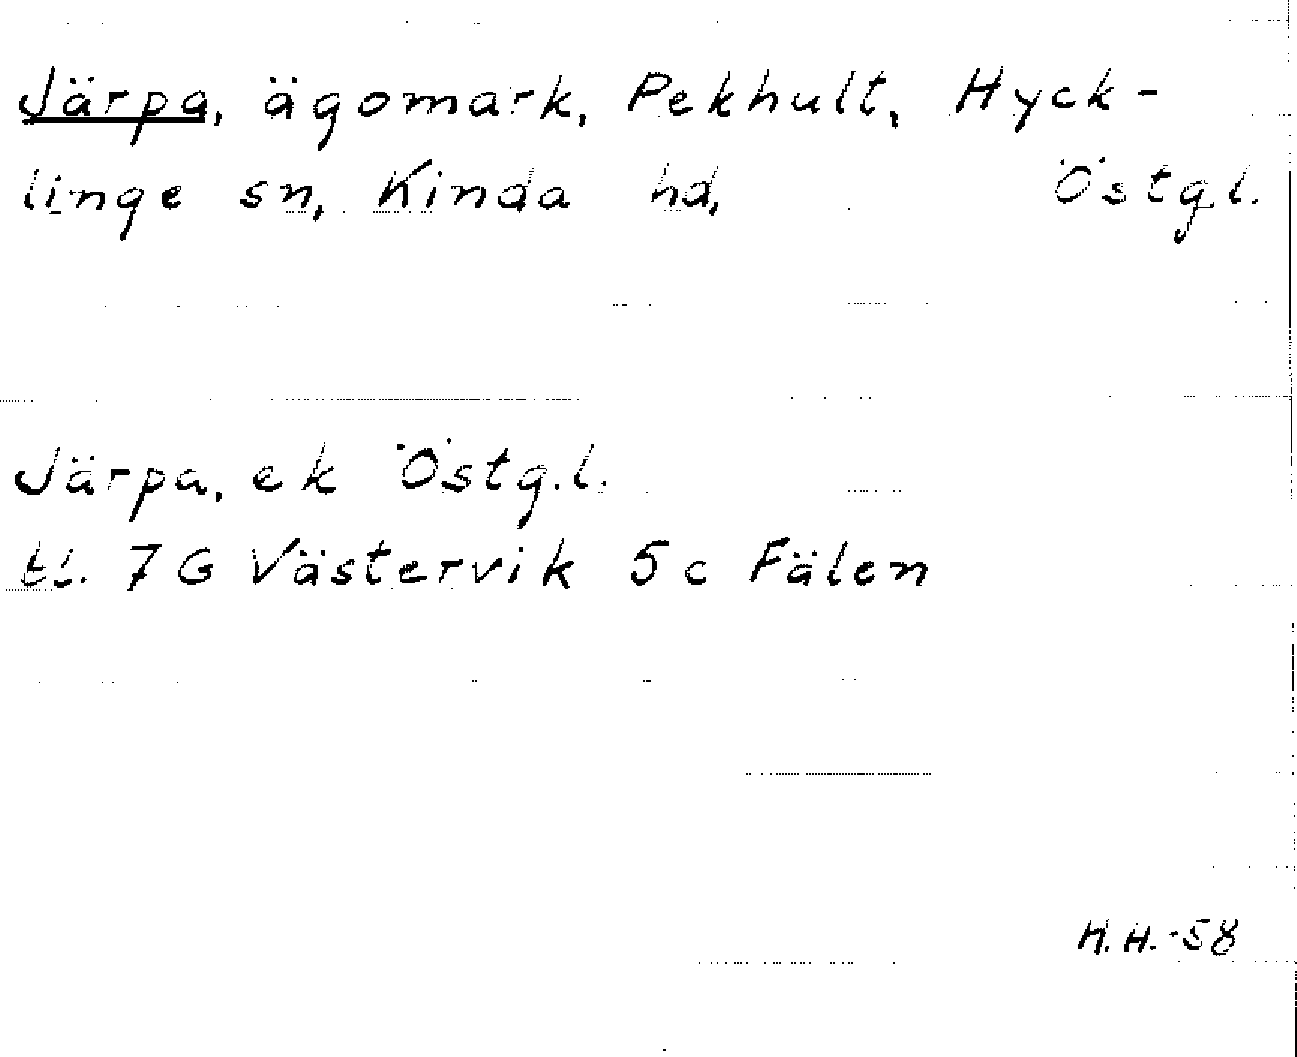 Järpa, ägomark, Pekhult, Hyck-
linge sn, Kinda hd, Östg.l.
Järpa, ek Östg.l.
tl. 7G Västervik 5c Fälen
H.H.-58